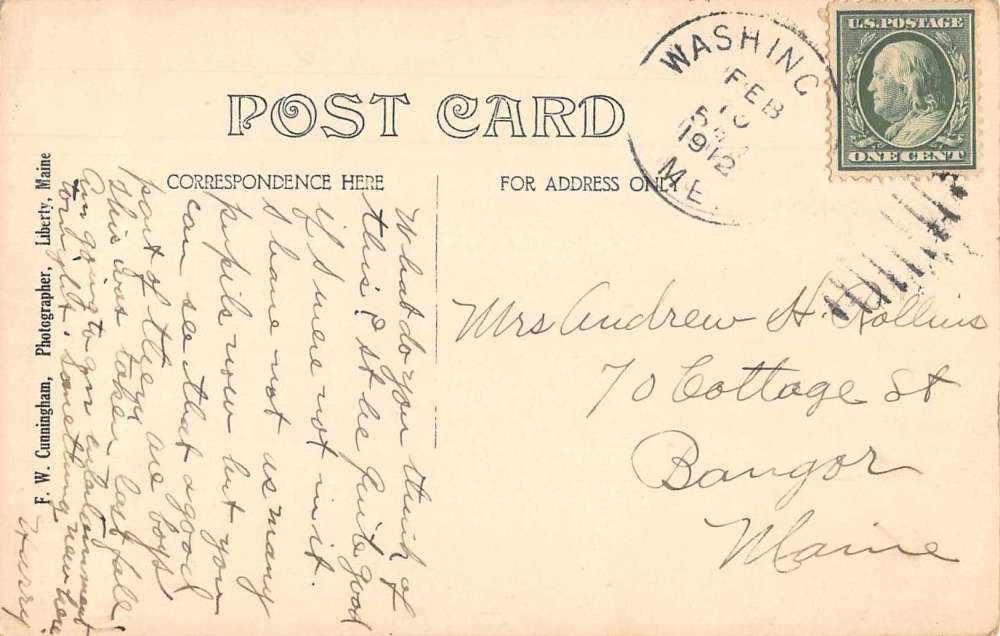 U.S. POSTAGE
ONE CENT
WASHING
FEB
1912
ME.
POST CARD
CORRESPONDENCE HERE
FOR ADDRESS ONLY
Mrs Andrew H. Rollins
70 Cottage St
Bangor
Maine
What do you think of
this? It be quite good
if I were not in it.
I have not as many
pupils now but you
can see that a good
part of they are boys
This was taken last fall.
Am going to an entertainment
tonight. Something new here
Hurry
F. W. Cunningham, Photographer, Liberty, Maine